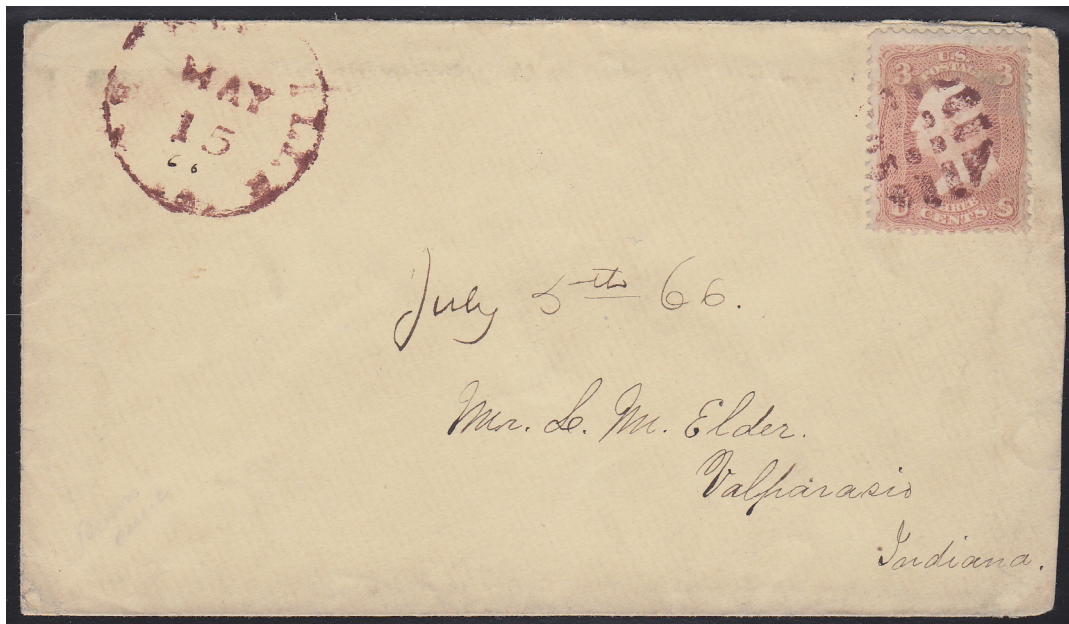 MAY
15
66
3 U.S. 3
POSTAGE
CENTS
July 5th 66.
Mr. L. M. Elder.
Valparasio
Indiana.